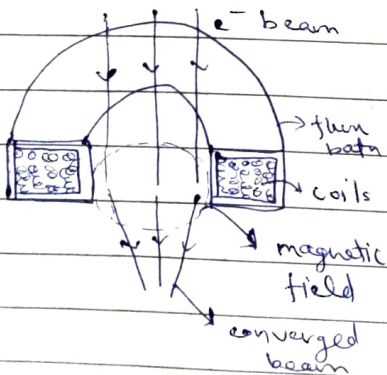 e⁻ beam
coils
magnetic
field
converged
beam